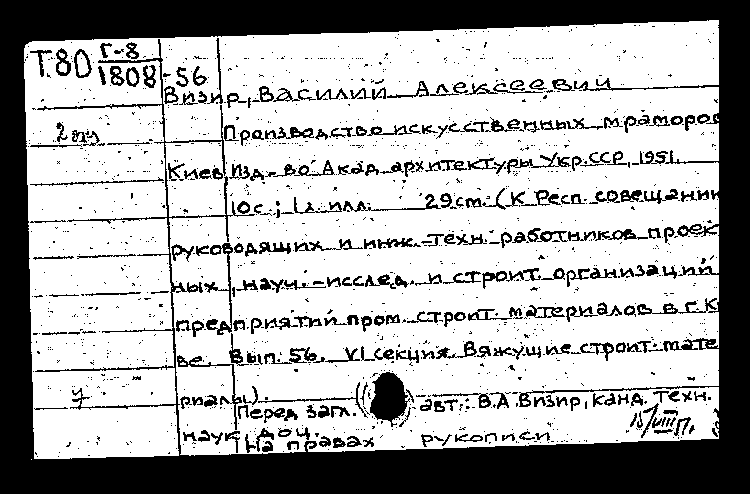 Т.80 Г-8
1808-56
Визир, Василий Алексеевич
2
Производство искусственных мраморов
Киев, Изд-во Акад. архитектуры Укр. ССР, 1951.
10с.; 1 л. илл. 29см. (К Респ. совещанию
руководящих и инж.-техн. работников проект
ных, науч.-исслед. и строит. организаций
предприятий пром. строит. материалов в г. К
ве. Вып. 56. VI секция. Вяжущие строит. мате
риалы).
Перед загл. авт.: В.А Визир, канд. техн.
наук, доц.
На правах рукописи